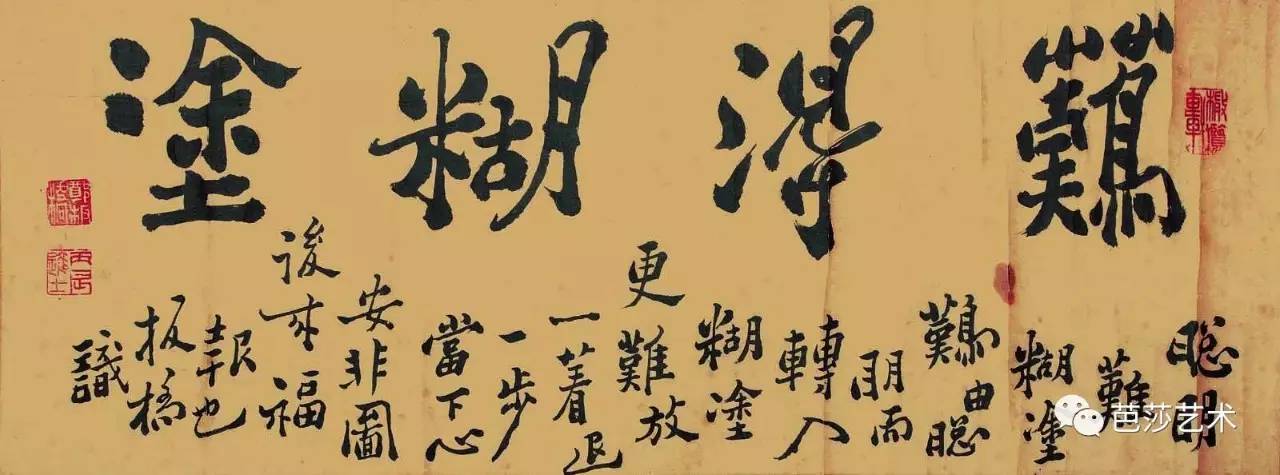 難得糊塗
聰明
難
糊塗
難由聰
明而
轉入
糊塗
更難放
一着退
一步
當下心
安非圖
後來福
報也
板橋
識
鄭板橋
丙辰進士
芭莎艺术